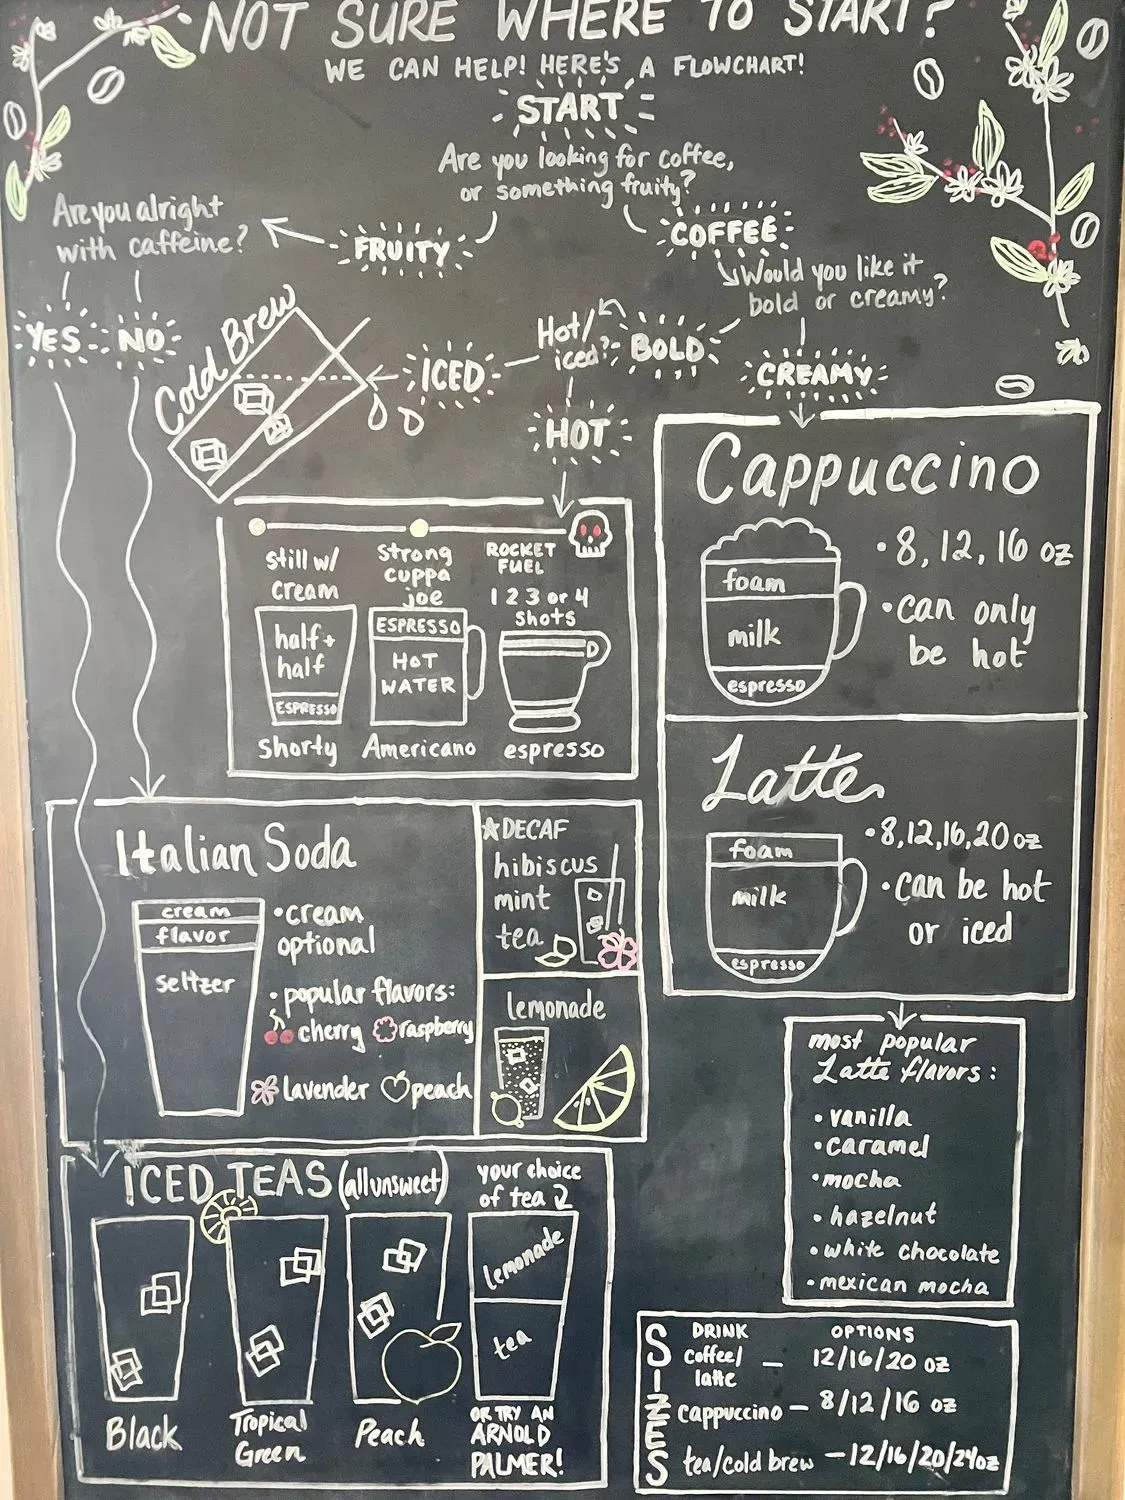 NOT SURE WHERE TO START?
WE CAN HELP! HERE'S A FLOWCHART!
START
Are you looking for coffee,
or something fruity?
FRUITY
COFFEE
Are you alright
with caffeine?
YES
NO
Would you like it
bold or creamy?
BOLD
CREAMY
Hot/
iced?
ICED
HOT
Cold Brew
still w/
cream
half +
half
ESPRESSO
Shorty
strong
cuppa
joe
ESPRESSO
HOT
WATER
Americano
ROCKET
FUEL
1 2 3 or 4
shots
espresso
Cappuccino
foam
milk
espresso
• 8, 12, 16 oz
• can only
be hot
Latte
foam
milk
espresso
• 8,12,16,20 oz
• can be hot
or iced
Italian Soda
cream
flavor
seltzer
• cream
optional
• popular flavors:
cherry raspberry
lavender peach
☆DECAF
hibiscus
mint
tea
lemonade
most popular
Latte flavors:
• vanilla
• caramel
• mocha
• hazelnut
• white chocolate
• mexican mocha
ICED TEAS (all unsweet)
Black
Tropical
Green
Peach
your choice
of tea
lemonade
tea
OR TRY AN
ARNOLD
PALMER!
SIZES
DRINK OPTIONS
coffee/
latte — 12/16/20 oz
cappuccino — 8/12/16 oz
tea/cold brew — 12/16/20/24oz